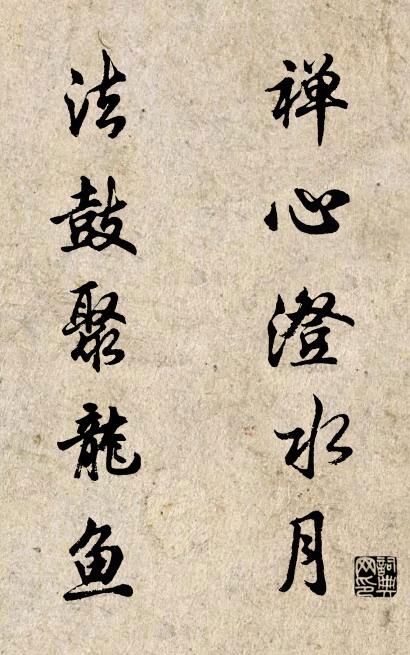 禅心澄水月
法鼓聚龍魚
詞典网印